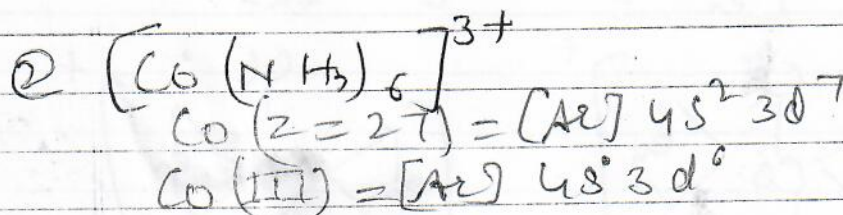 ② [Co(NH₃)₆]³⁺
Co (Z = 27) = [Ar] 4s² 3d⁷
Co(III) = [Ar] 4s⁰ 3d⁶